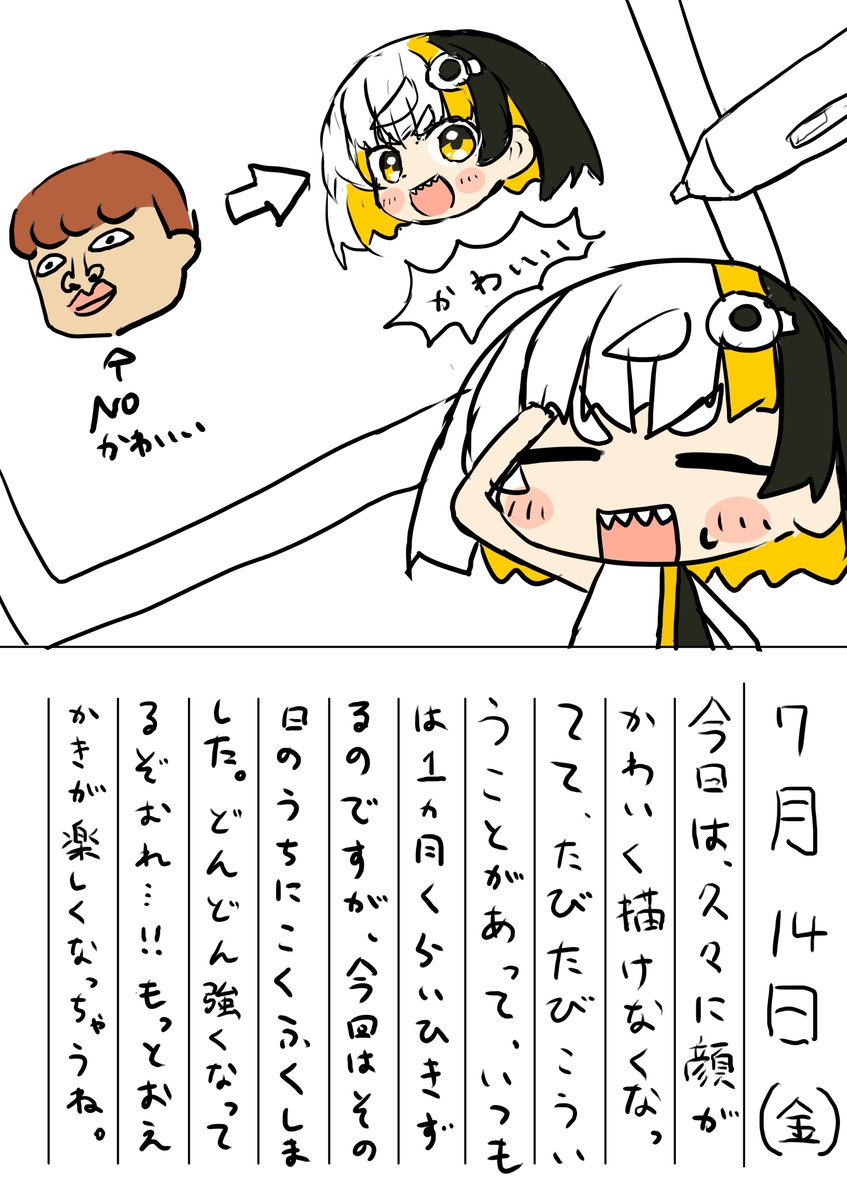 かわいいい
NO
かわいい
7月14日(金)
今日は、久々に顔が
かわいく描けなくなっ
てて、たびたびこうい
うことがあって、いつも
は1ヵ月くらいひきず
るのですが、今回はその
日のうちにこくふくしま
した。どんどん強くなって
るぞおれ…!!もっとおえ
かきが楽しくなっちゃうね。